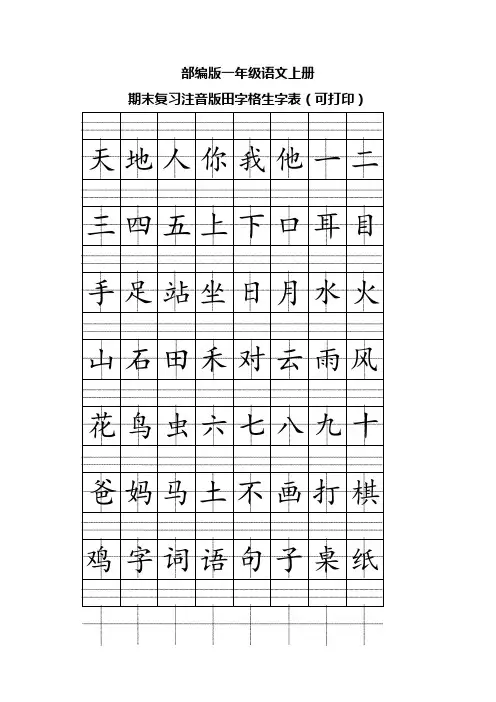 部编版一年级语文上册
期末复习注音版田字格生字表（可打印）
天地人你我他一二
三四五上下口耳目
手足站坐日月水火
山石田禾对云雨风
花鸟虫六七八九十
爸妈马土不画打棋
鸡字词语句子桌纸